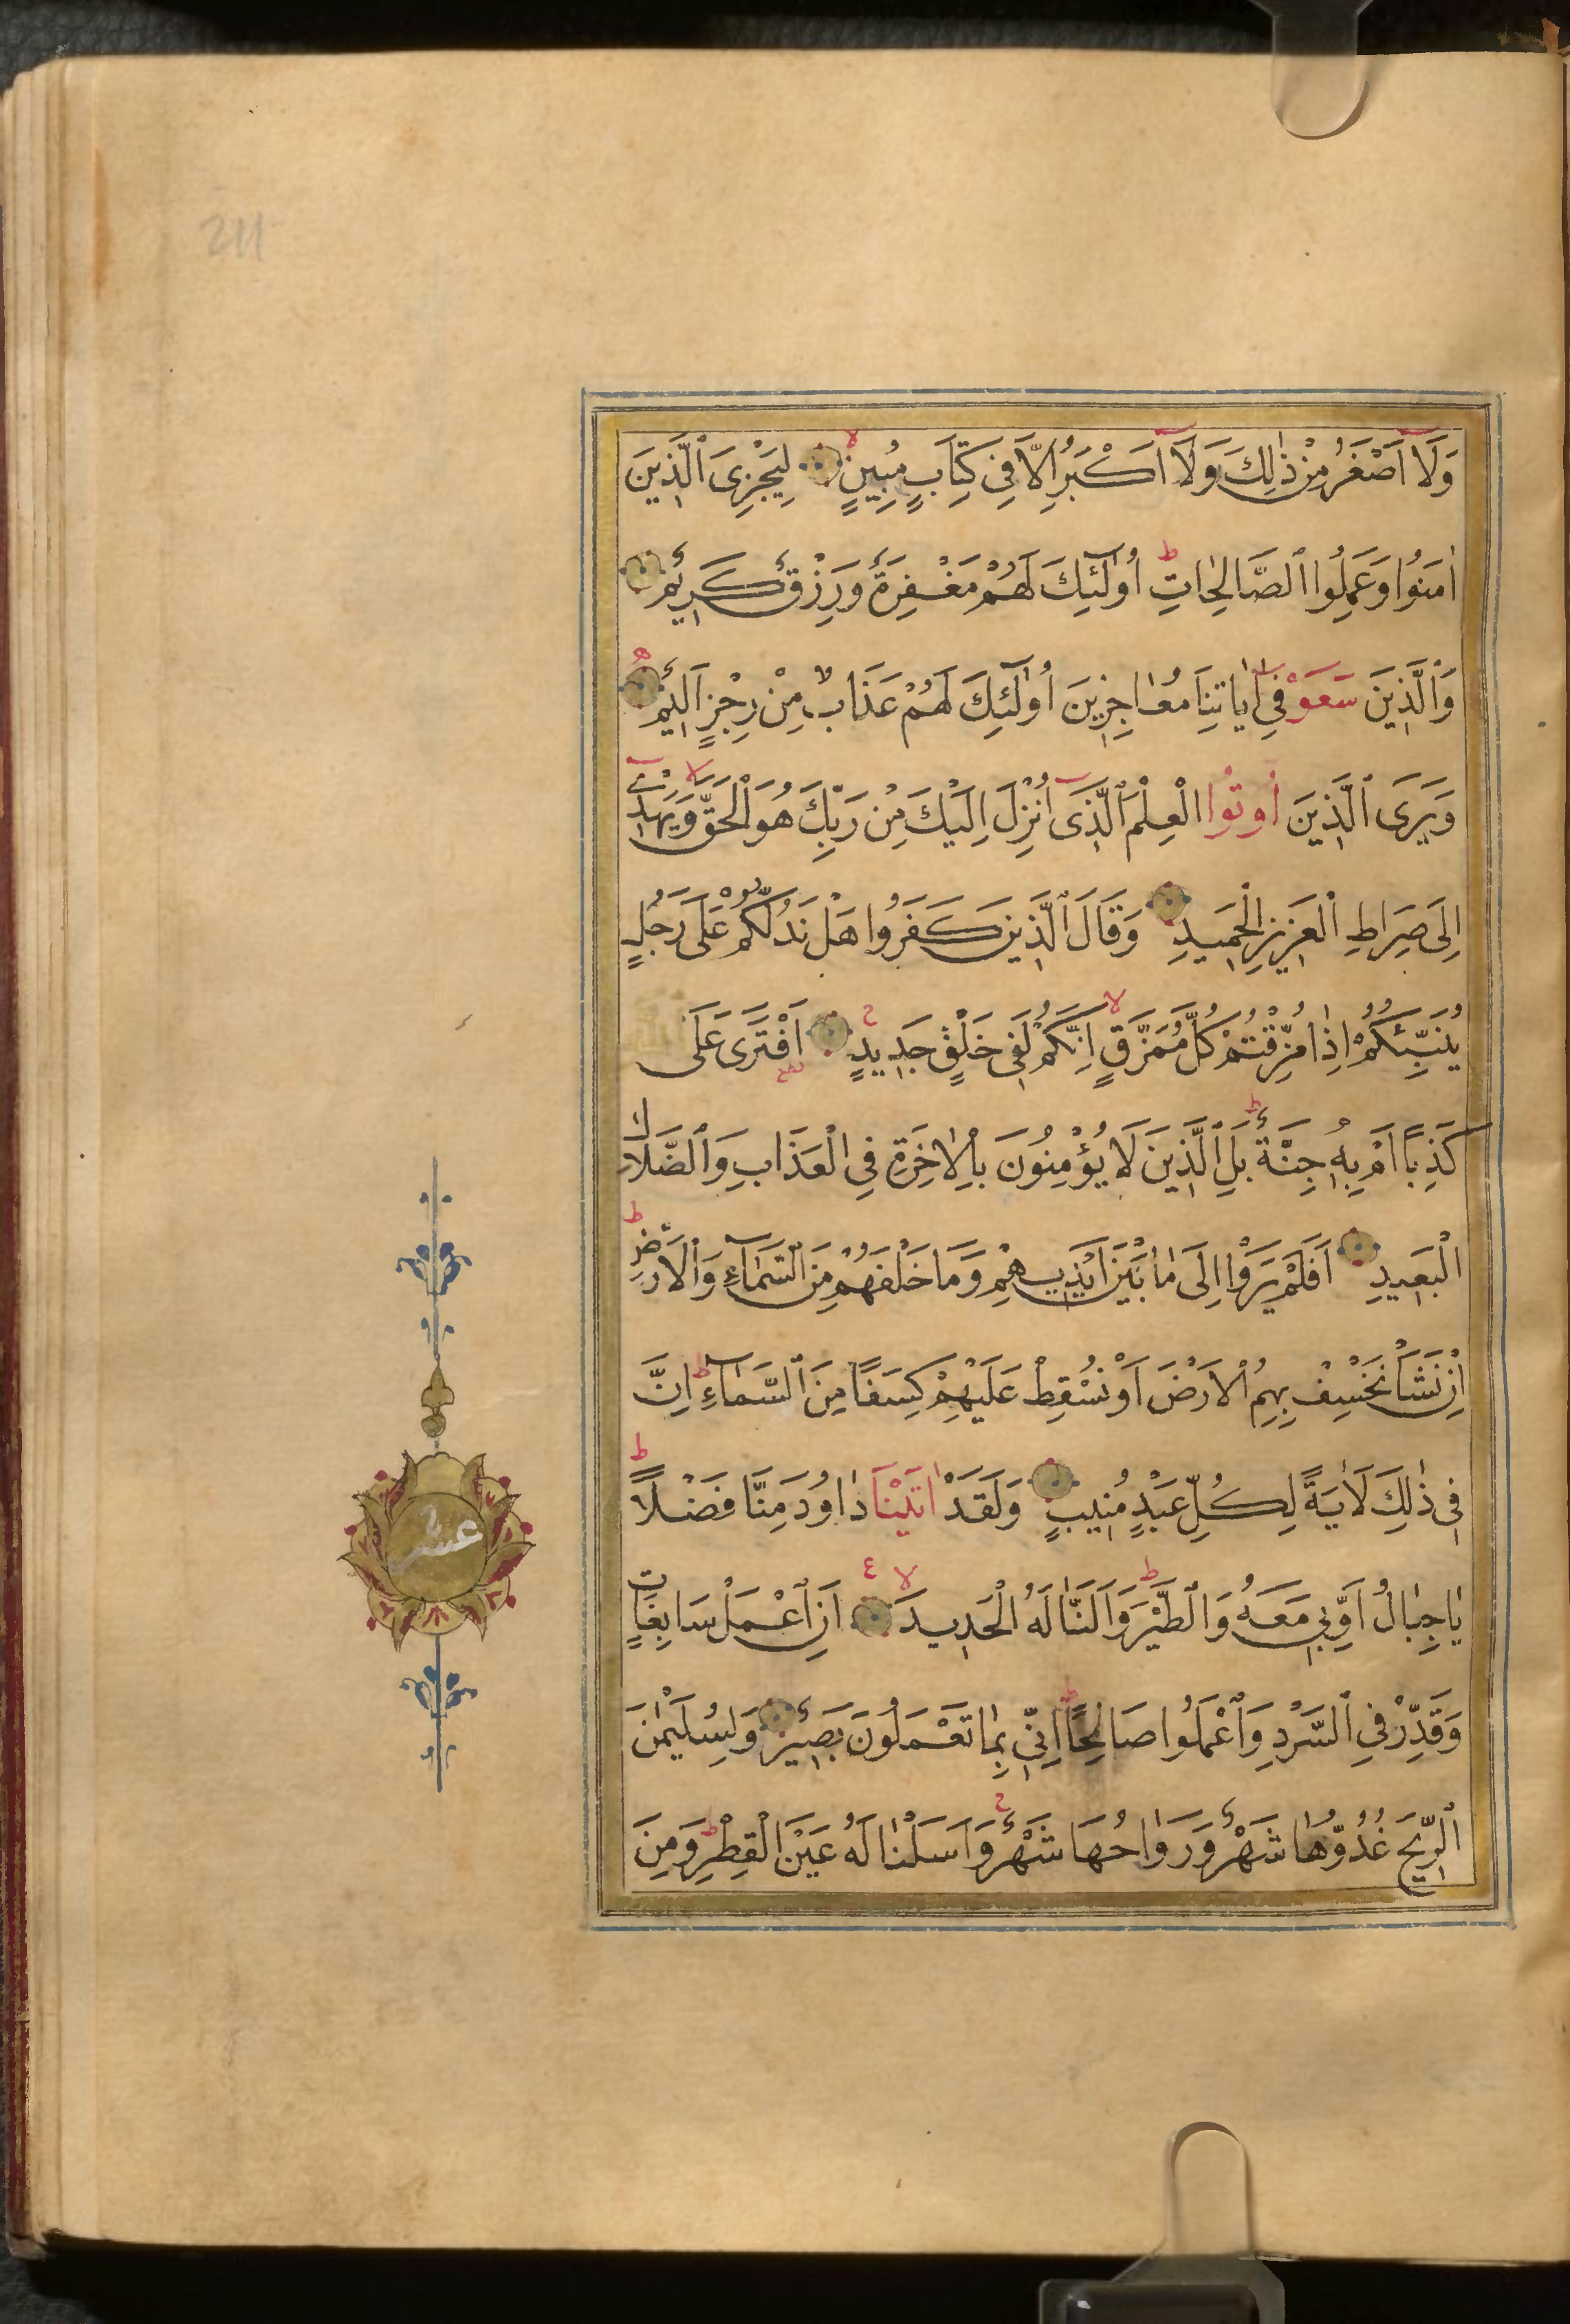 211
وَلَا اَصْغَرُ مِنْ ذٰلِكَ وَلَا اَكْبَرُ اِلَّا فِى كِتَابٍ مُبِينٍ لِيَجْزِىَ الَّذِينَ
اٰمَنُوا وَعَمِلُوا الصَّالِحَاتِ اُولٰٓئِكَ لَهُمْ مَغْفِرَةٌ وَرِزْقٌ كَرِيمٌ
وَالَّذِينَ سَعَوْ فِى اٰيَاتِنَا مُعَاجِزِينَ اُولٰٓئِكَ لَهُمْ عَذَابٌ مِنْ رِجْزٍ اَلِيمٌ
وَيَرَى الَّذِينَ اُوتُوا الْعِلْمَ الَّذِى اُنْزِلَ اِلَيْكَ مِنْ رَبِّكَ هُوَ الْحَقَّ وَيَهْدِى
اِلَى صِرَاطِ الْعَزِيزِ الْحَمِيدِ وَقَالَ الَّذِينَ كَفَرُوا هَلْ نَدُلُّكُمْ عَلَى رَجُلٍ
يُنَبِّئُكُمْ اِذَا مُزِّقْتُمْ كُلَّ مُمَزَّقٍ اِنَّكُمْ لَفِى خَلْقٍ جَدِيدٍ اَفْتَرَى عَلَى
كَذِبًا اَمْ بِهِ جِنَّةٌ بَلِ الَّذِينَ لَا يُؤْمِنُونَ بِالْاٰخِرَةِ فِى الْعَذَابِ وَالضَّلَالِ
الْبَعِيدِ اَفَلَمْ يَرَوْا اِلَى مَا بَيْنَ اَيْدِيهِمْ وَمَا خَلْفَهُمْ مِنَ السَّمَاءِ وَالْاَرْضِ
اِنْ نَشَأْ نَخْسِفْ بِهِمُ الْاَرْضَ اَوْ نُسْقِطْ عَلَيْهِمْ كِسَفًا مِنَ السَّمَاءِ اِنَّ
فِى ذٰلِكَ لَاٰيَةً لِكُلِّ عَبْدٍ مُنِيبٍ وَلَقَدْ اٰتَيْنَا دَاوُدَ مِنَّا فَضْلًا
يَا جِبَالُ اَوِّبِى مَعَهُ وَالطَّيْرَ وَاَلَنَّا لَهُ الْحَدِيدَ اَنِ اعْمَلْ سَابِغَاتٍ
وَقَدِّرْ فِى السَّرْدِ وَاعْمَلُوا صَالِحًا اِنِّى بِمَا تَعْمَلُونَ بَصِيرٌ وَلِسُلَيْمٰنَ
الرِّيحَ غُدُوُّهَا شَهْرٌ وَرَوَاحُهَا شَهْرٌ وَاَسَلْنَا لَهُ عَيْنَ الْقِطْرِ وَمِنَ
عشر